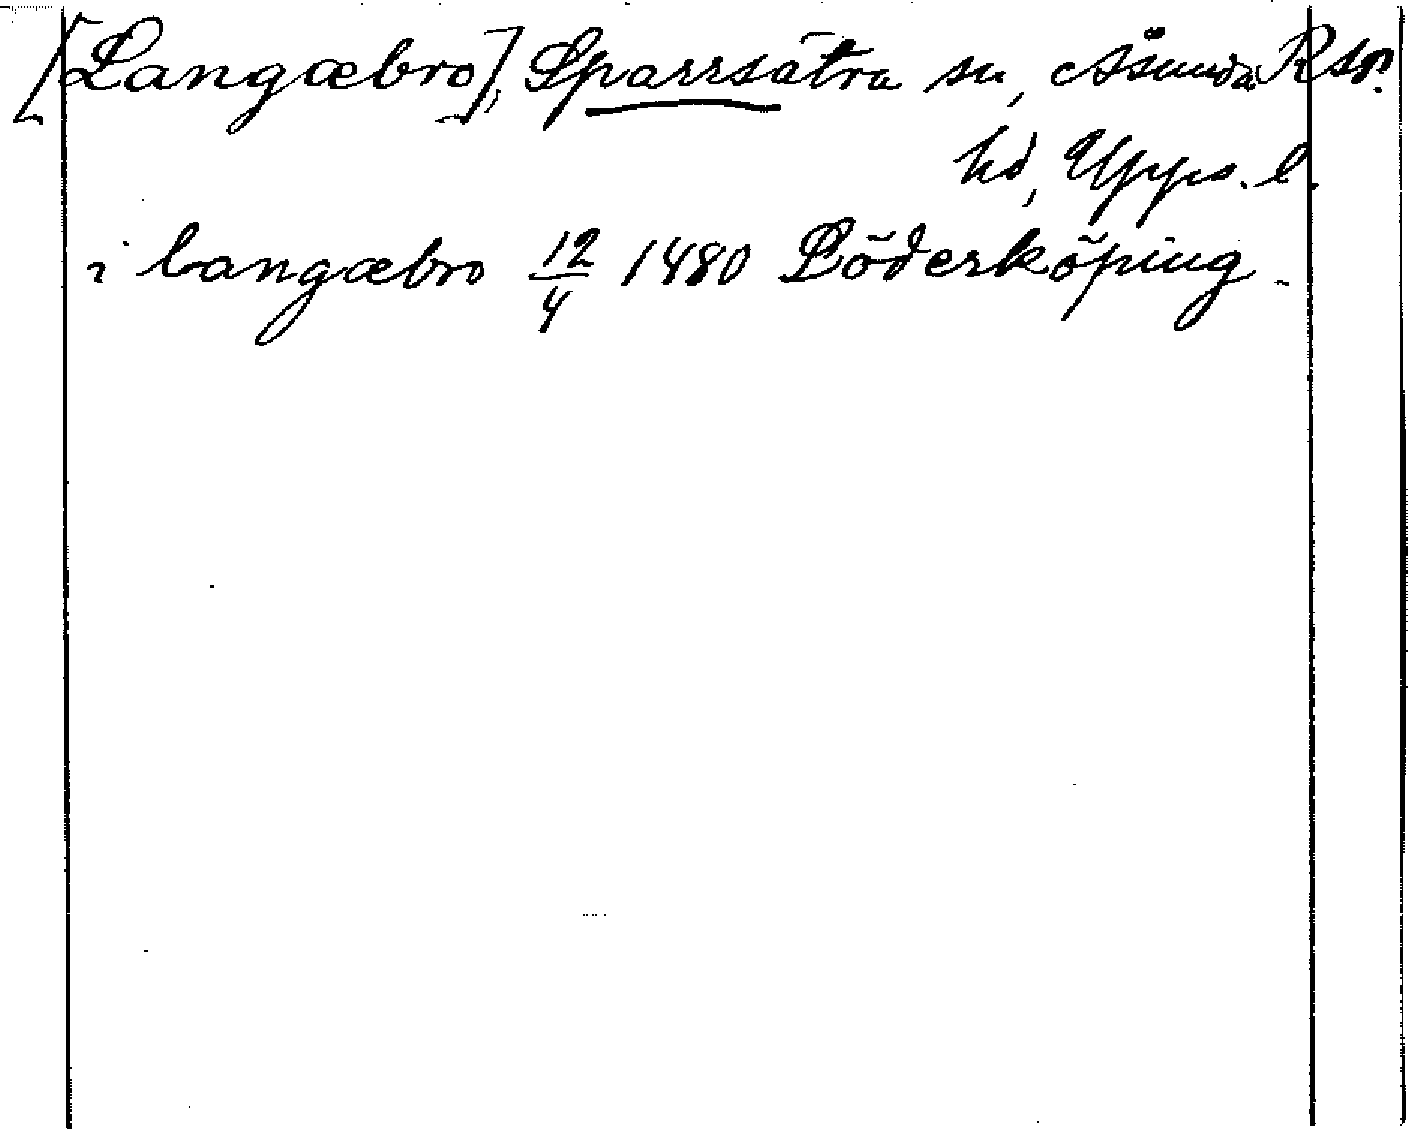 [Langæbro], Sparrsätra sn, Åsunda Rsp.
hd, Upps. l.
i langæbro 12/4 1480 Söderköping.